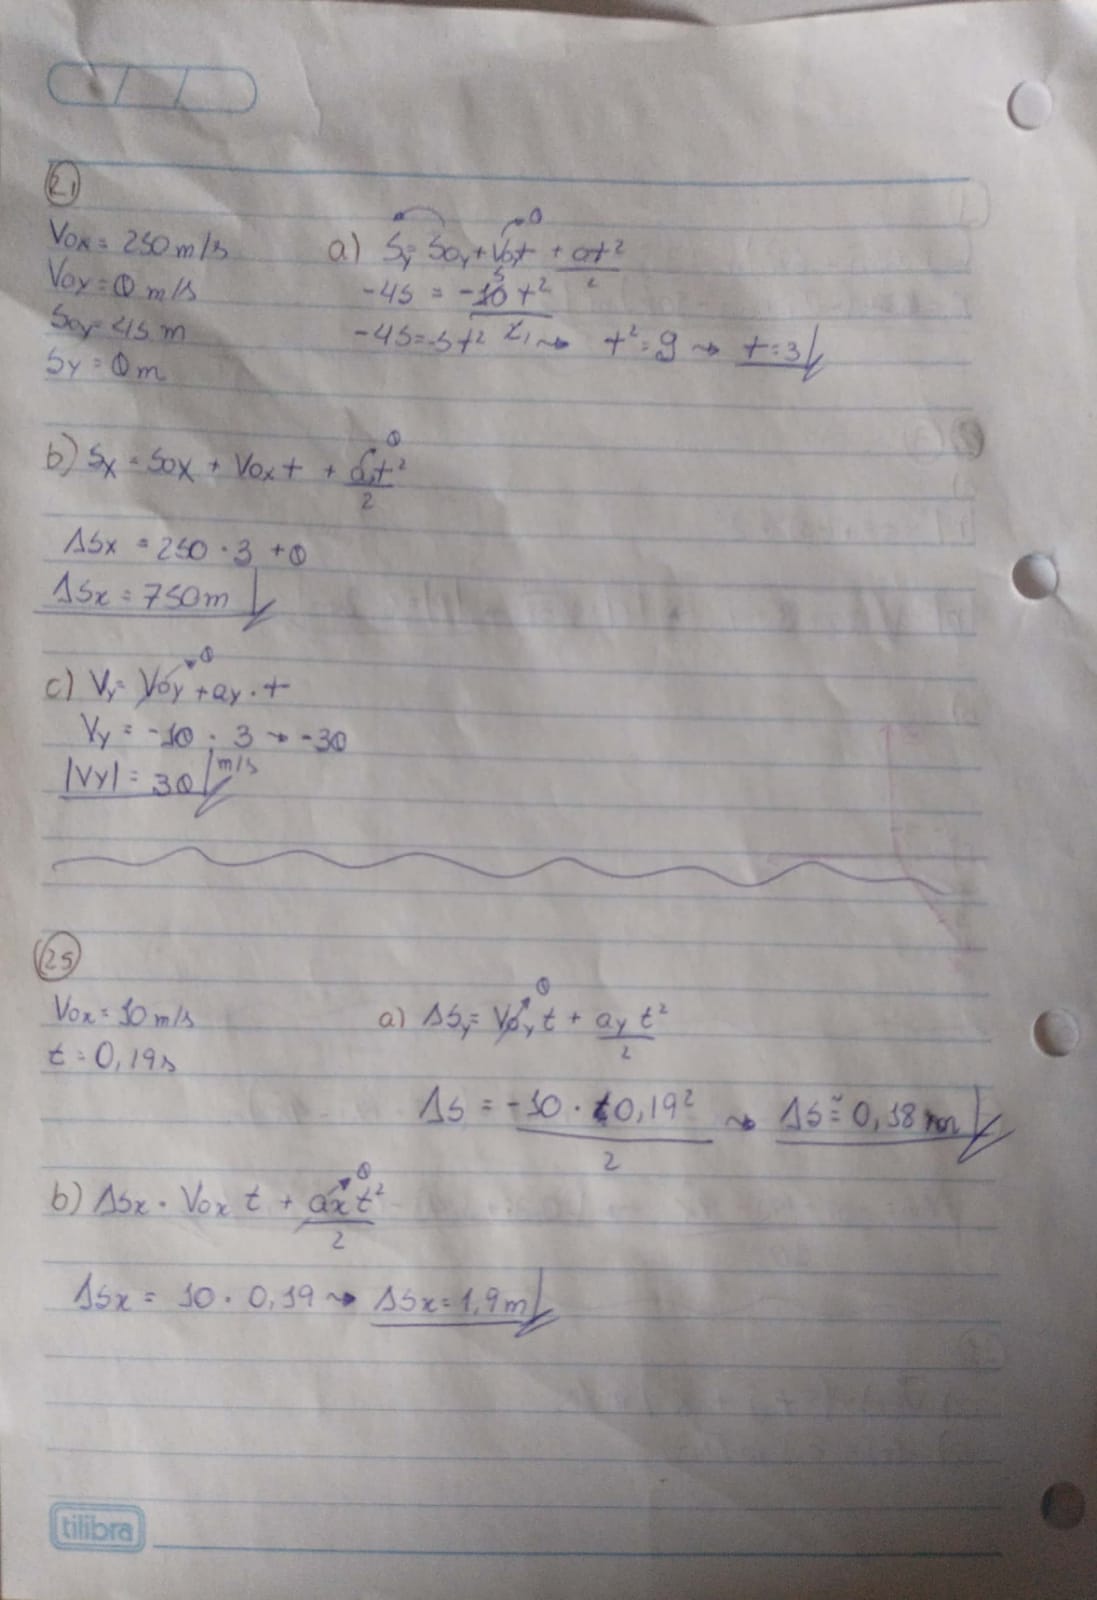 21
Vox = 250 m/s
Voy = 0 m/s
Soy = 45 m
Sy = 0 m
a) Sy = Soy + Voyt + at²/2
0
-45 = -10 t²
5
2
-45 = -5t² → t² = 9 → t = 3
b) Sx = Sox + Voxt + axt²/2
0
ΔSx = 250 · 3 + 0
ΔSx = 750m
c) Vy = Voy + ay · t
0
Vy = -10 · 3 → -30
|Vy| = 30 m/s
25
Vox = 10 m/s
t = 0,19s
a) ΔSy = Voy t + ay t²/2
0
ΔS = -10 · 0,19²/2 → ΔS ≅ 0,18 m
b) ΔSx · Vox t + ax t²/2
0
ΔSx = 10 · 0,19 → ΔSx = 1,9m
tilibra